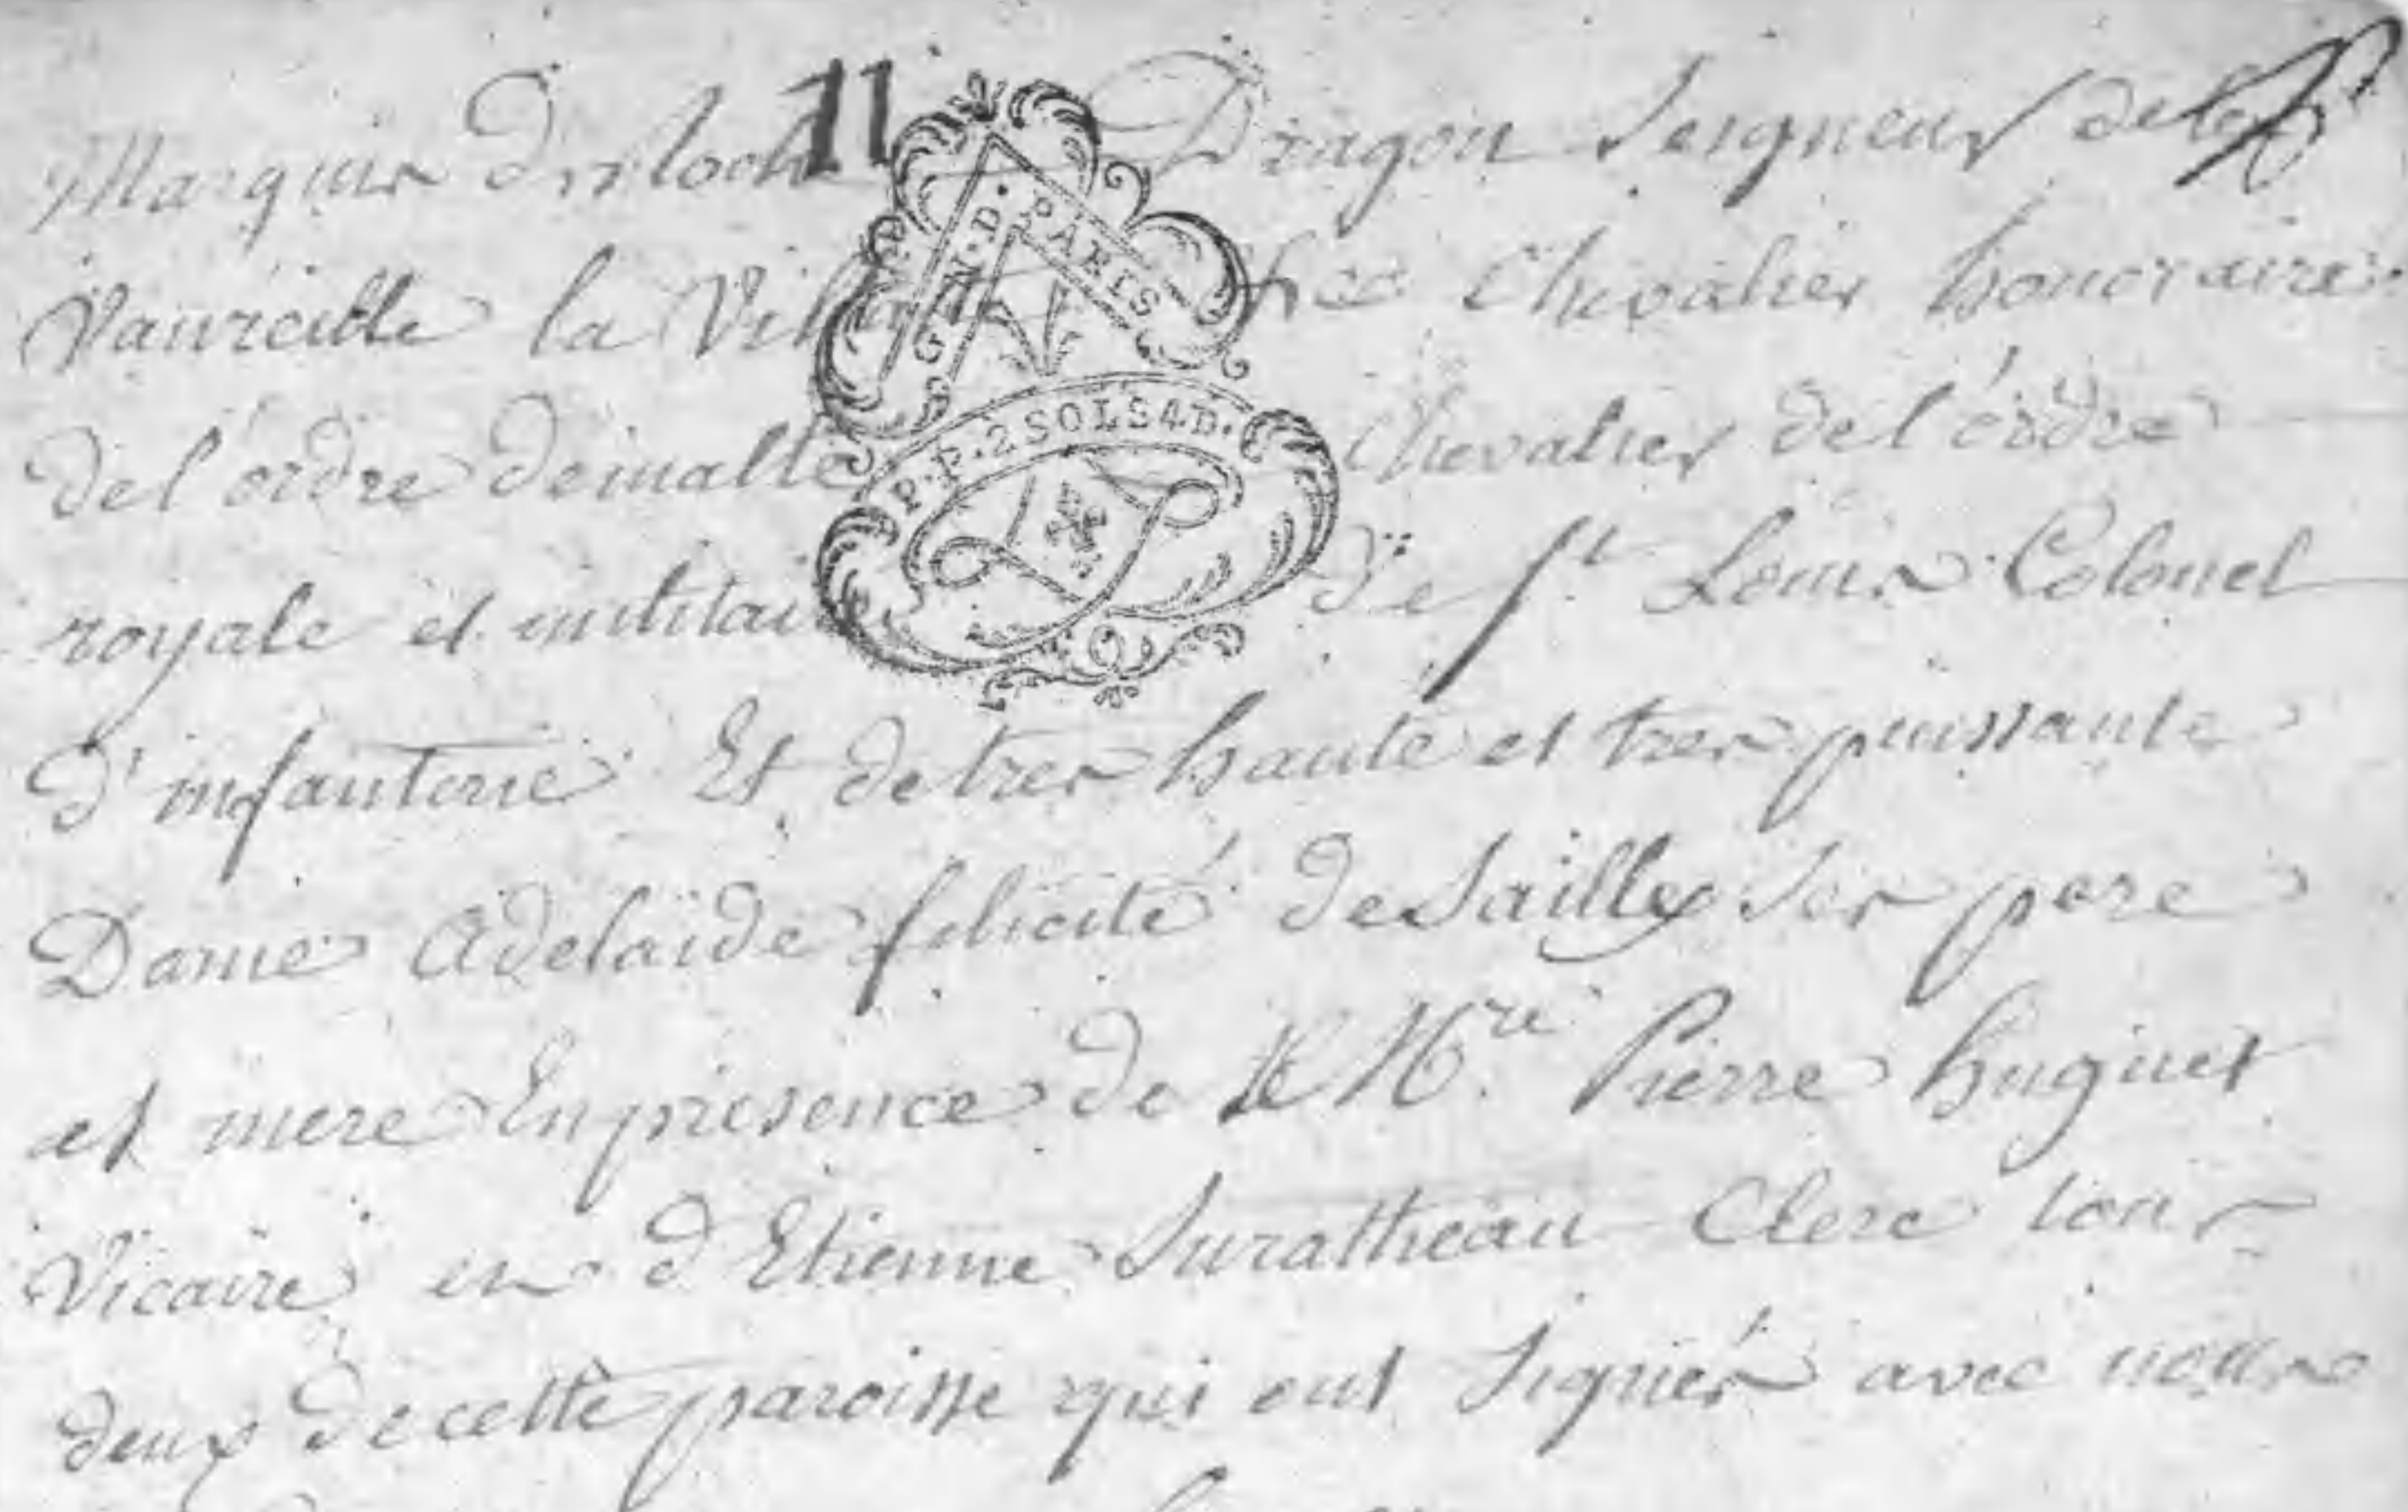 11
Marquis Dragon Seigneur de
GEN. D. PARIS
la chevalier honoraire
P.P. 2 SOLS 4 D.
del'ordre demalte chevalier de l'ordre
royale et militaire de St Louis Colonel
d'infanterie Et detres haute et tres puissante
Dame Adelaïde felicité de Sailly Ses pere
et mere En presence de Mre Pierre huguet
Vicaire et d Etienne Suratteau Clerc tous
deux decette paroisse qui ont Signés avec nous